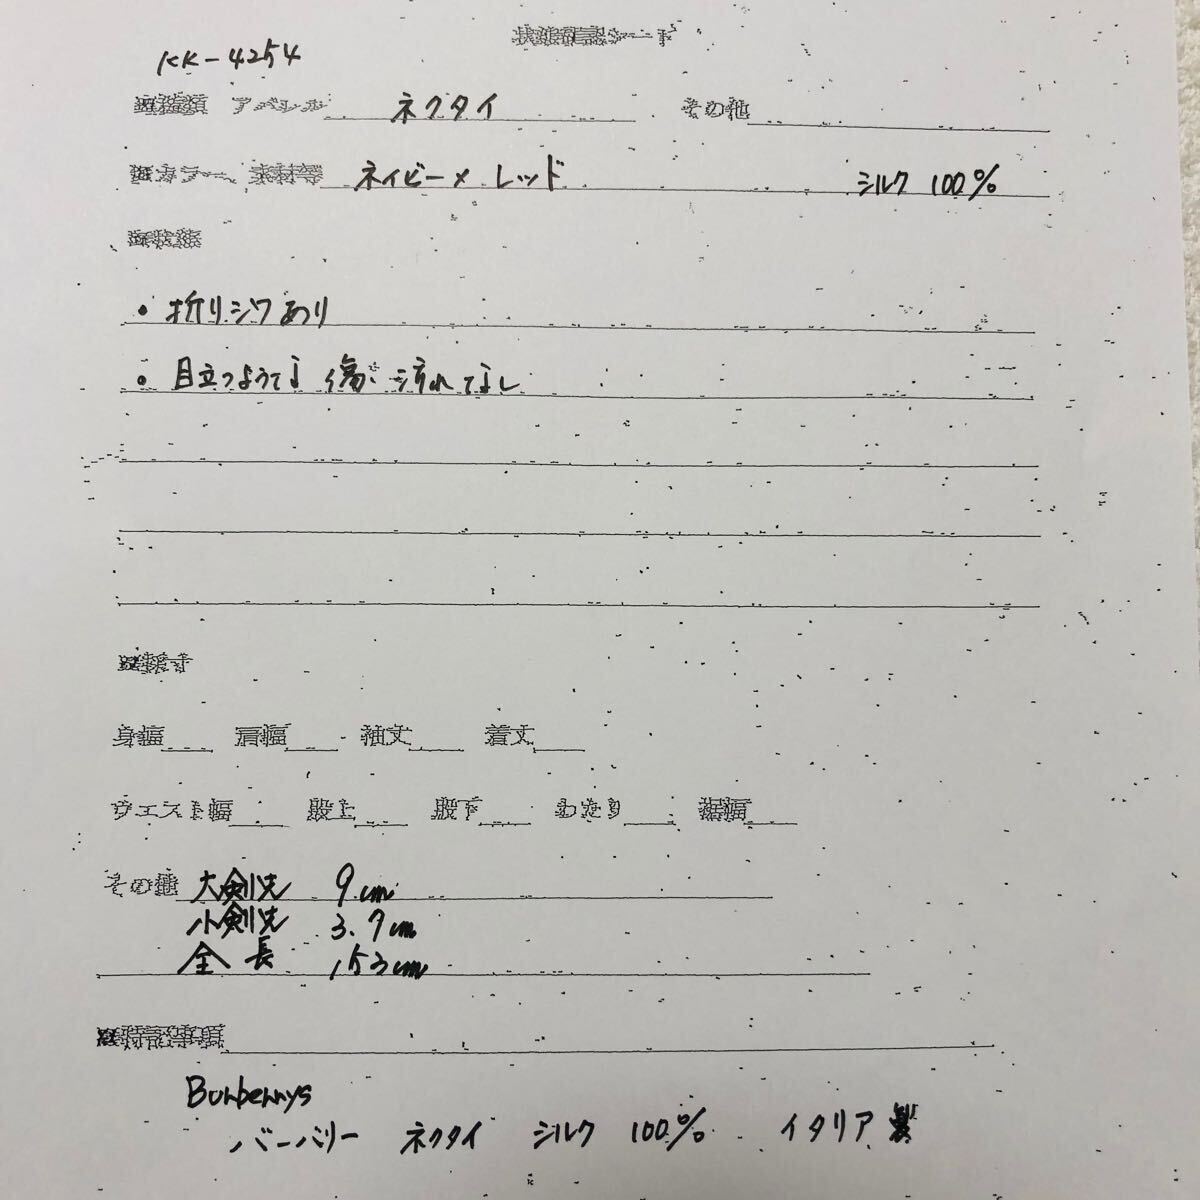 状態確認シート
KK-4254
種類 アパレル ネクタイ その他
カラー、素材等 ネイビー×レッド シルク 100%
状態
・折りシワあり
・目立つような傷、汚れなし
採寸
身幅 肩幅 袖丈 着丈
ウエスト幅 股上 股下 わたり 裾幅
その他 大剣先 9cm
小剣先 3.7cm
全長 153cm
特記事項
Burberrys
バーバリー ネクタイ シルク 100% イタリア製